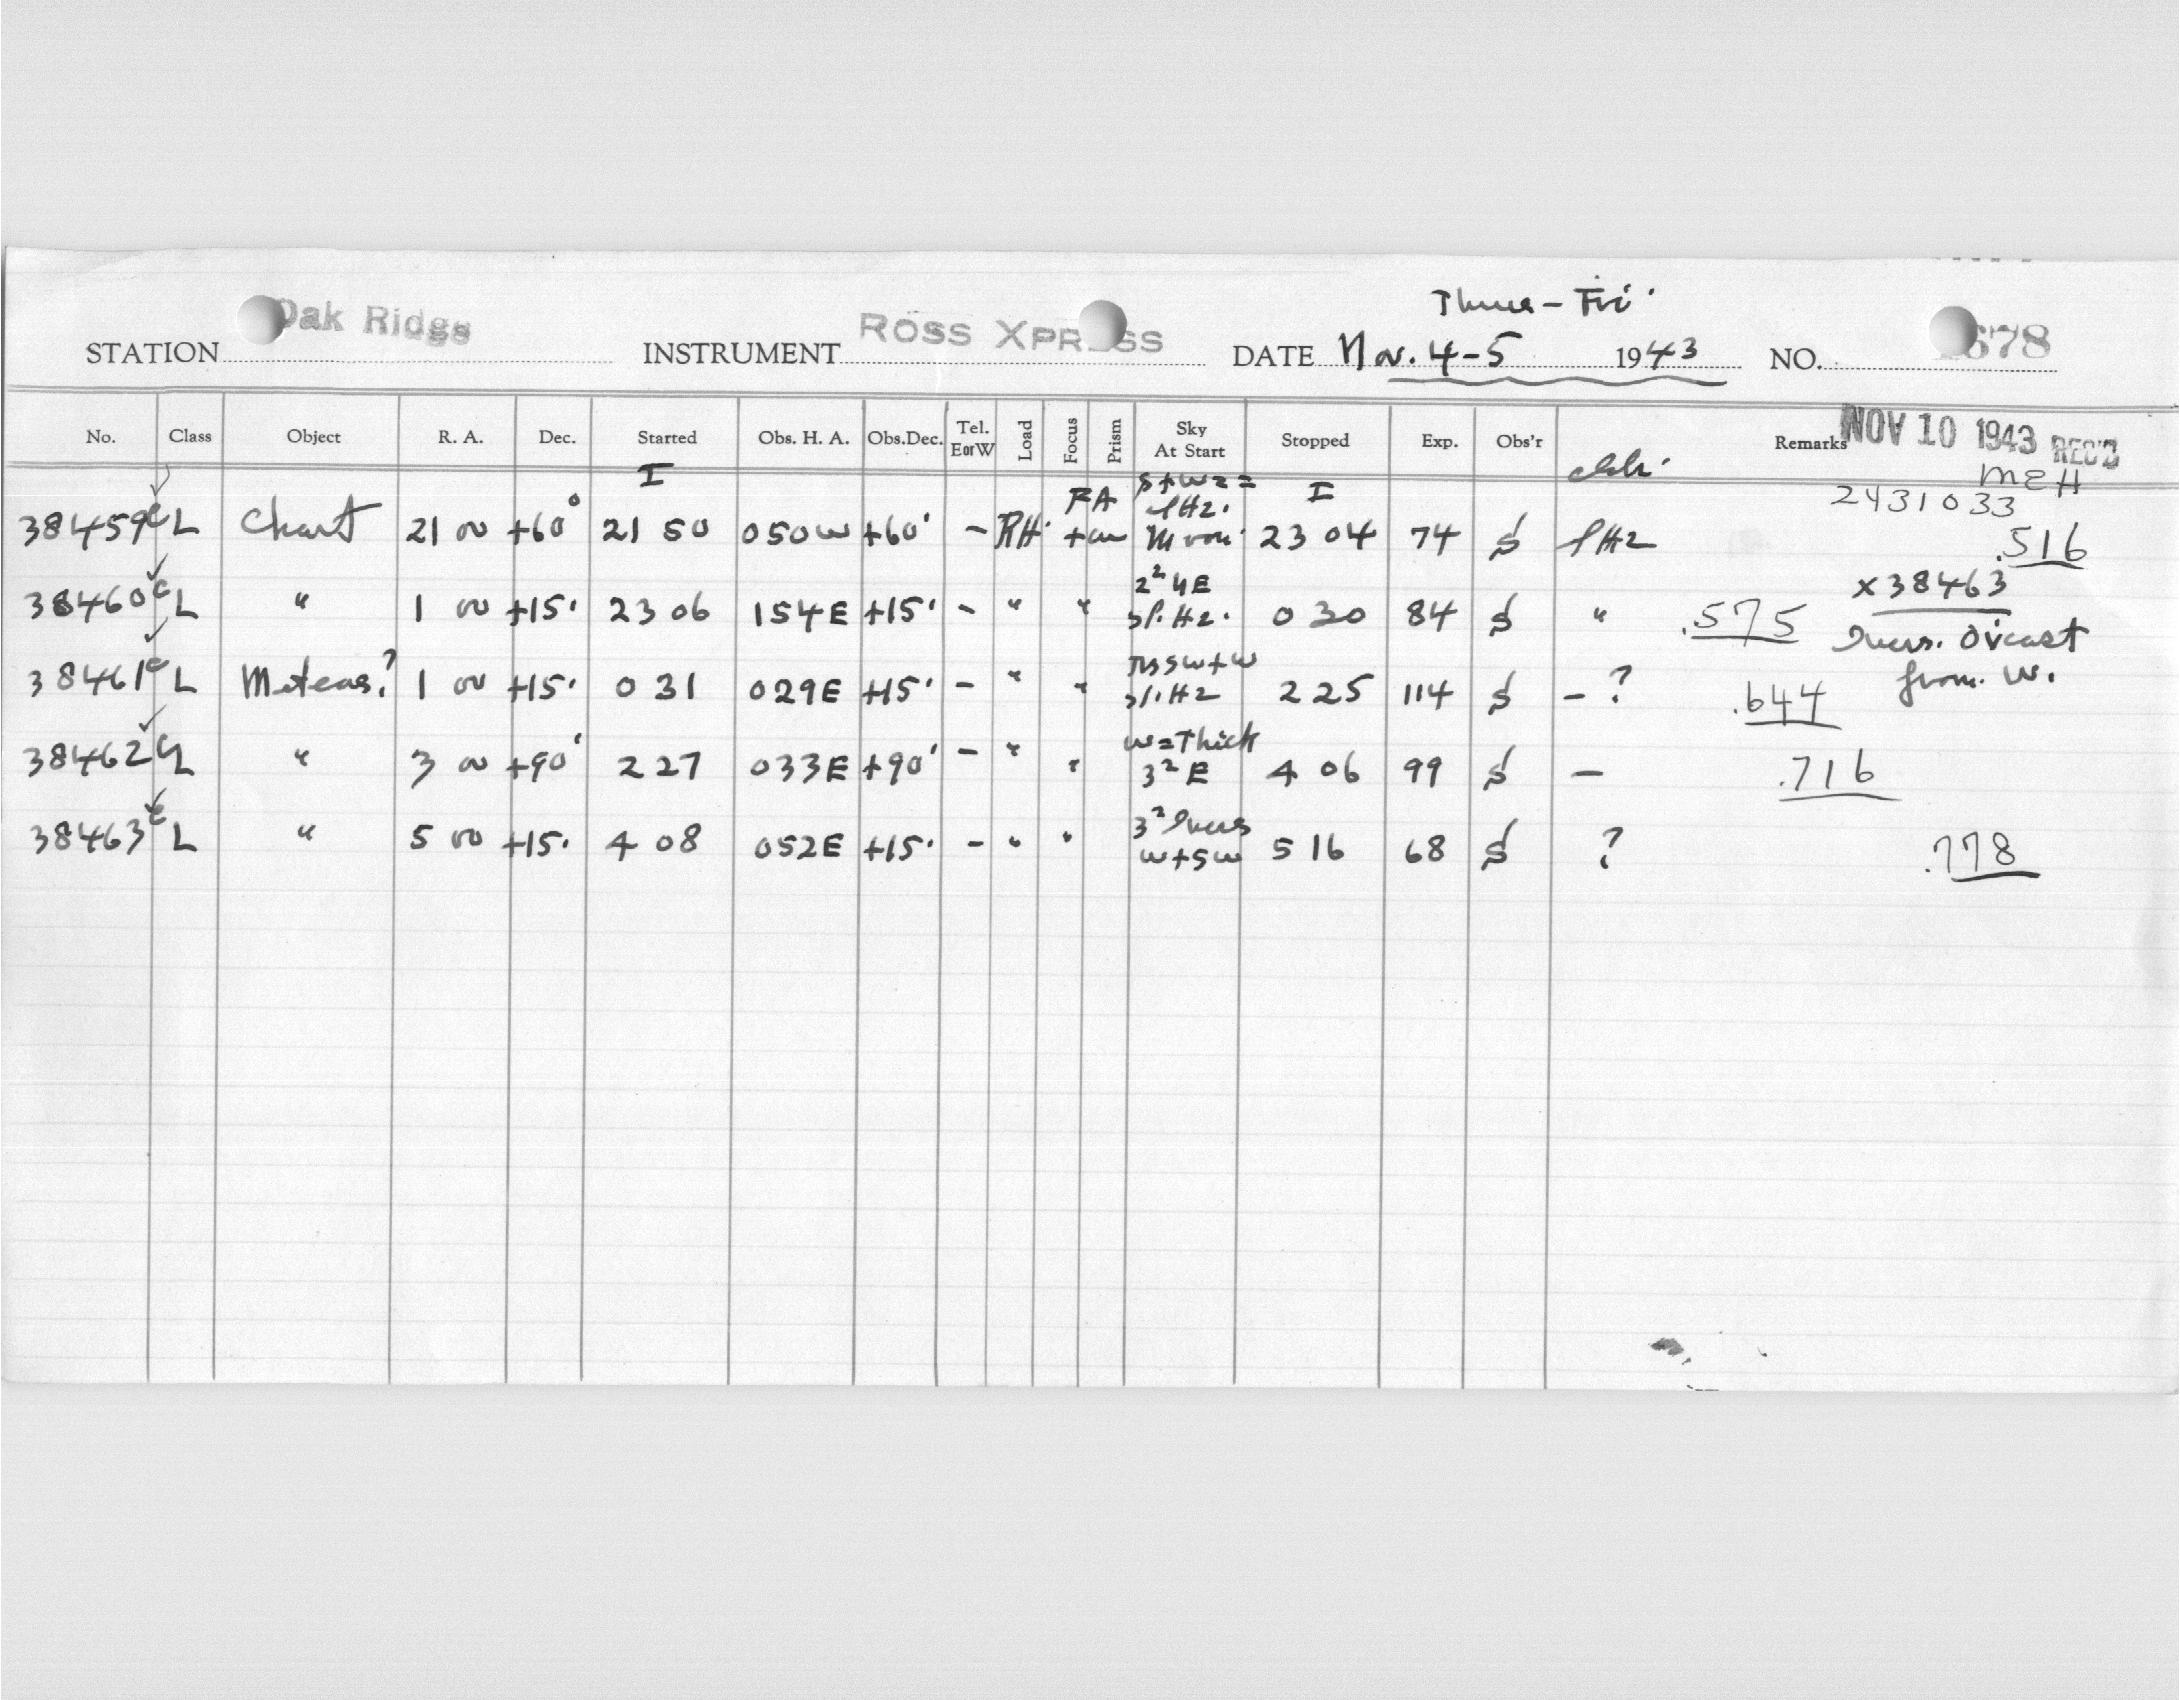 Thurs - Fri.
STATION Oak Ridge INSTRUMENT ROSS XPRESS DATE Nov. 4-5 1943 NO. 678
No. Class Object R. A. Dec. Started Obs. H. A. Obs.Dec. Tel. E or W Load Focus Prism Sky At Start Stopped Exp. Obs'r Remarks NOV 10 1943 REC'D
I I MEH
2431033
38459 c L Chart 21 00 +60° 21 50 050W +60° - RH. FA S+W2= Moon 23 04 74 .516
38460 c L " 1 00 +15° 23 06 154E +15° - " " 2² sl. Hz. 0 30 84 " .575 x38463
38461 c L Meteors? 1 00 +15° 0 31 029E +15° - " " sl. Hz 2 25 114 - ? .644 Incrs. Ov'cast from W.
38462 c L " 3 00 +90° 2 27 033E +90° - " " W=Thick 3² E 4 06 99 - .716
38463 c L " 5 00 +15° 4 08 052E +15° - " " 3² Incrs W+SW 5 16 68 ? .778